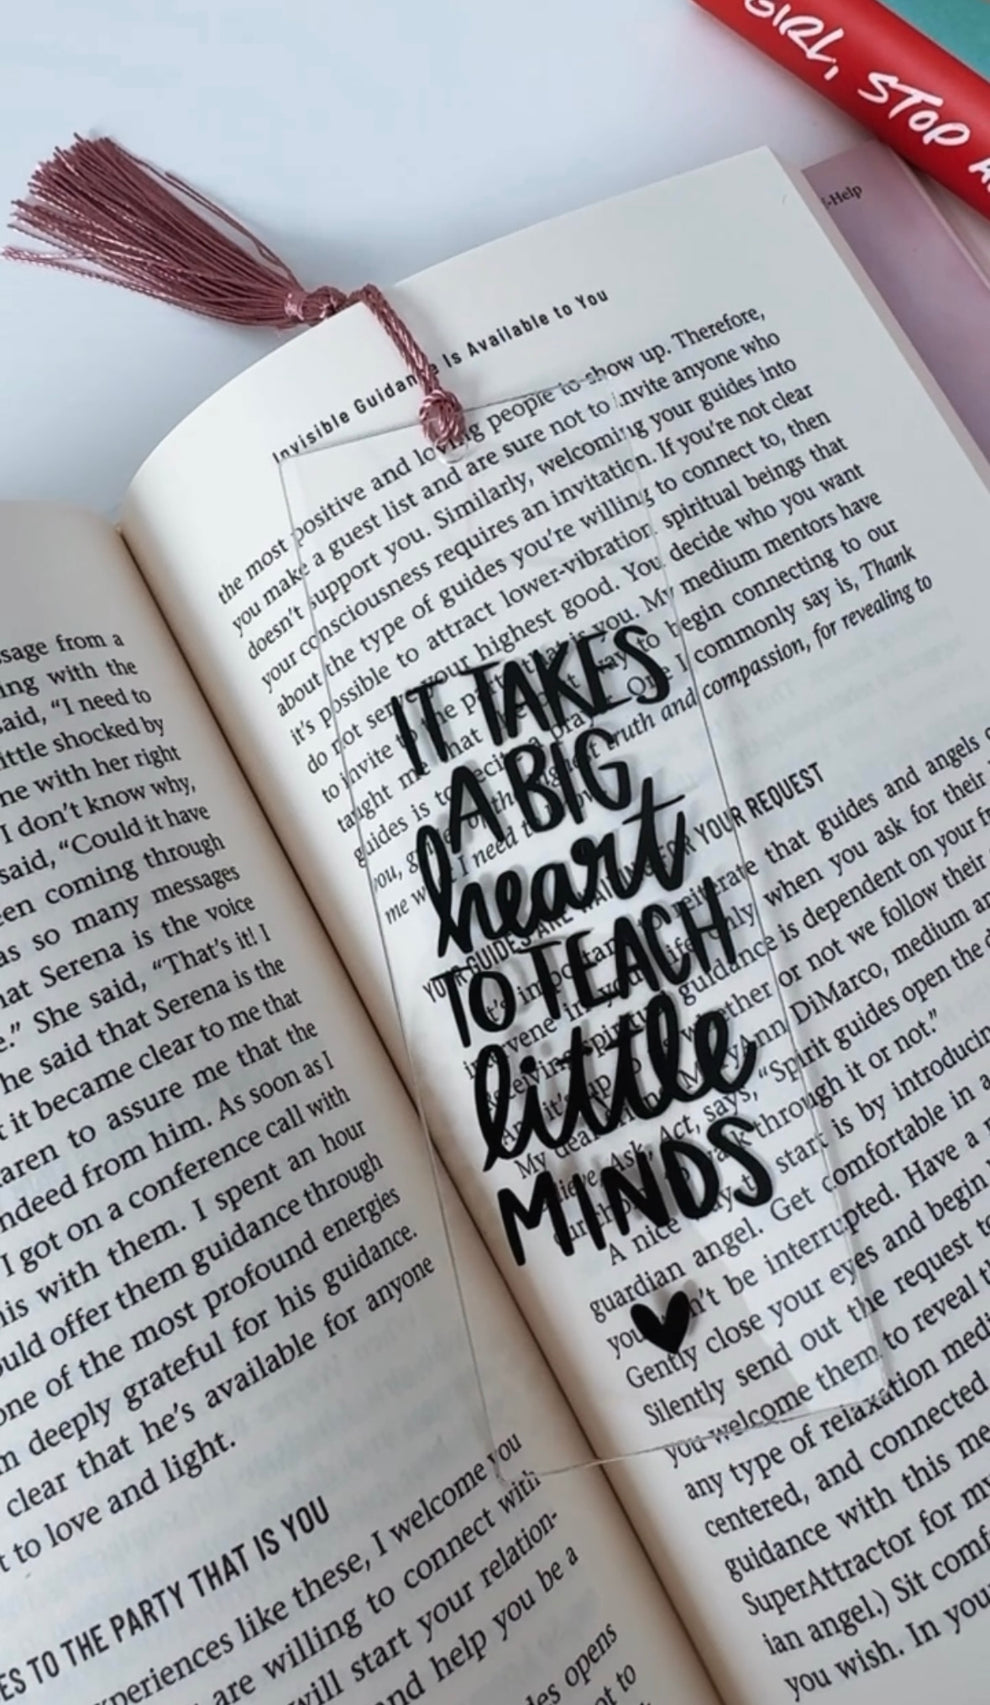 GIRL, STOP
-Help
ssage from a
ing with the
said, “I need to
ittle shocked by
ne with her right
I don’t know why,
said, “Could it have
een coming through
as so many messages
hat Serena is the voice
e.” She said, “That’s it! I
he said that Serena is the
t it became clear to me that
aren to assure me that the
ndeed from him. As soon as I
I got on a conference call with
his with them. I spent an hour
ould offer them guidance through
one of the most profound energies
m deeply grateful for his guidance.
clear that he’s available for anyone
t to love and light.
ES TO THE PARTY THAT IS YOU
xperiences like these, I welcome you
are willing to connect with
will start your relation-
and help you be a
des opens
ot to
Invisible Guidance Is Available to You
the most positive and loving people to show up. Therefore,
you make a guest list and are sure not to invite anyone who
doesn’t support you. Similarly, welcoming your guides into
your consciousness requires an invitation. If you’re not clear
about the type of guides you’re willing to connect to, then
it’s possible to attract lower-vibration spiritual beings that
do not serve your highest good. You decide who you want
to invite to the party that is you. My medium mentors have
taught me that the way to begin connecting to our
guides is to One I commonly say is, Thank
you, truth and compassion, for revealing to
me I need
YOUR GUIDES ARE WAITING FOR YOUR REQUEST
It’s important reiterate that guides and angels
intervene in your life only when you ask for their
Receiving spiritual guidance is dependent on your
it’s up to whether or not we follow their
My dear MaryAnn DiMarco, medium
Ask, Act, says, “Spirit guides open the
through it or not.”
A nice way to start is by introducing
guardian angel. Get comfortable in a
you won’t be interrupted. Have a
Gently close your eyes and begin
Silently send out the request to
you welcome them to reveal
any type of relaxation
centered, and connected
guidance with this
SuperAttractor for
ian angel.) Sit
you wish. In you
IT TAKES
A BIG
heart
TO TEACH
little
MINDS